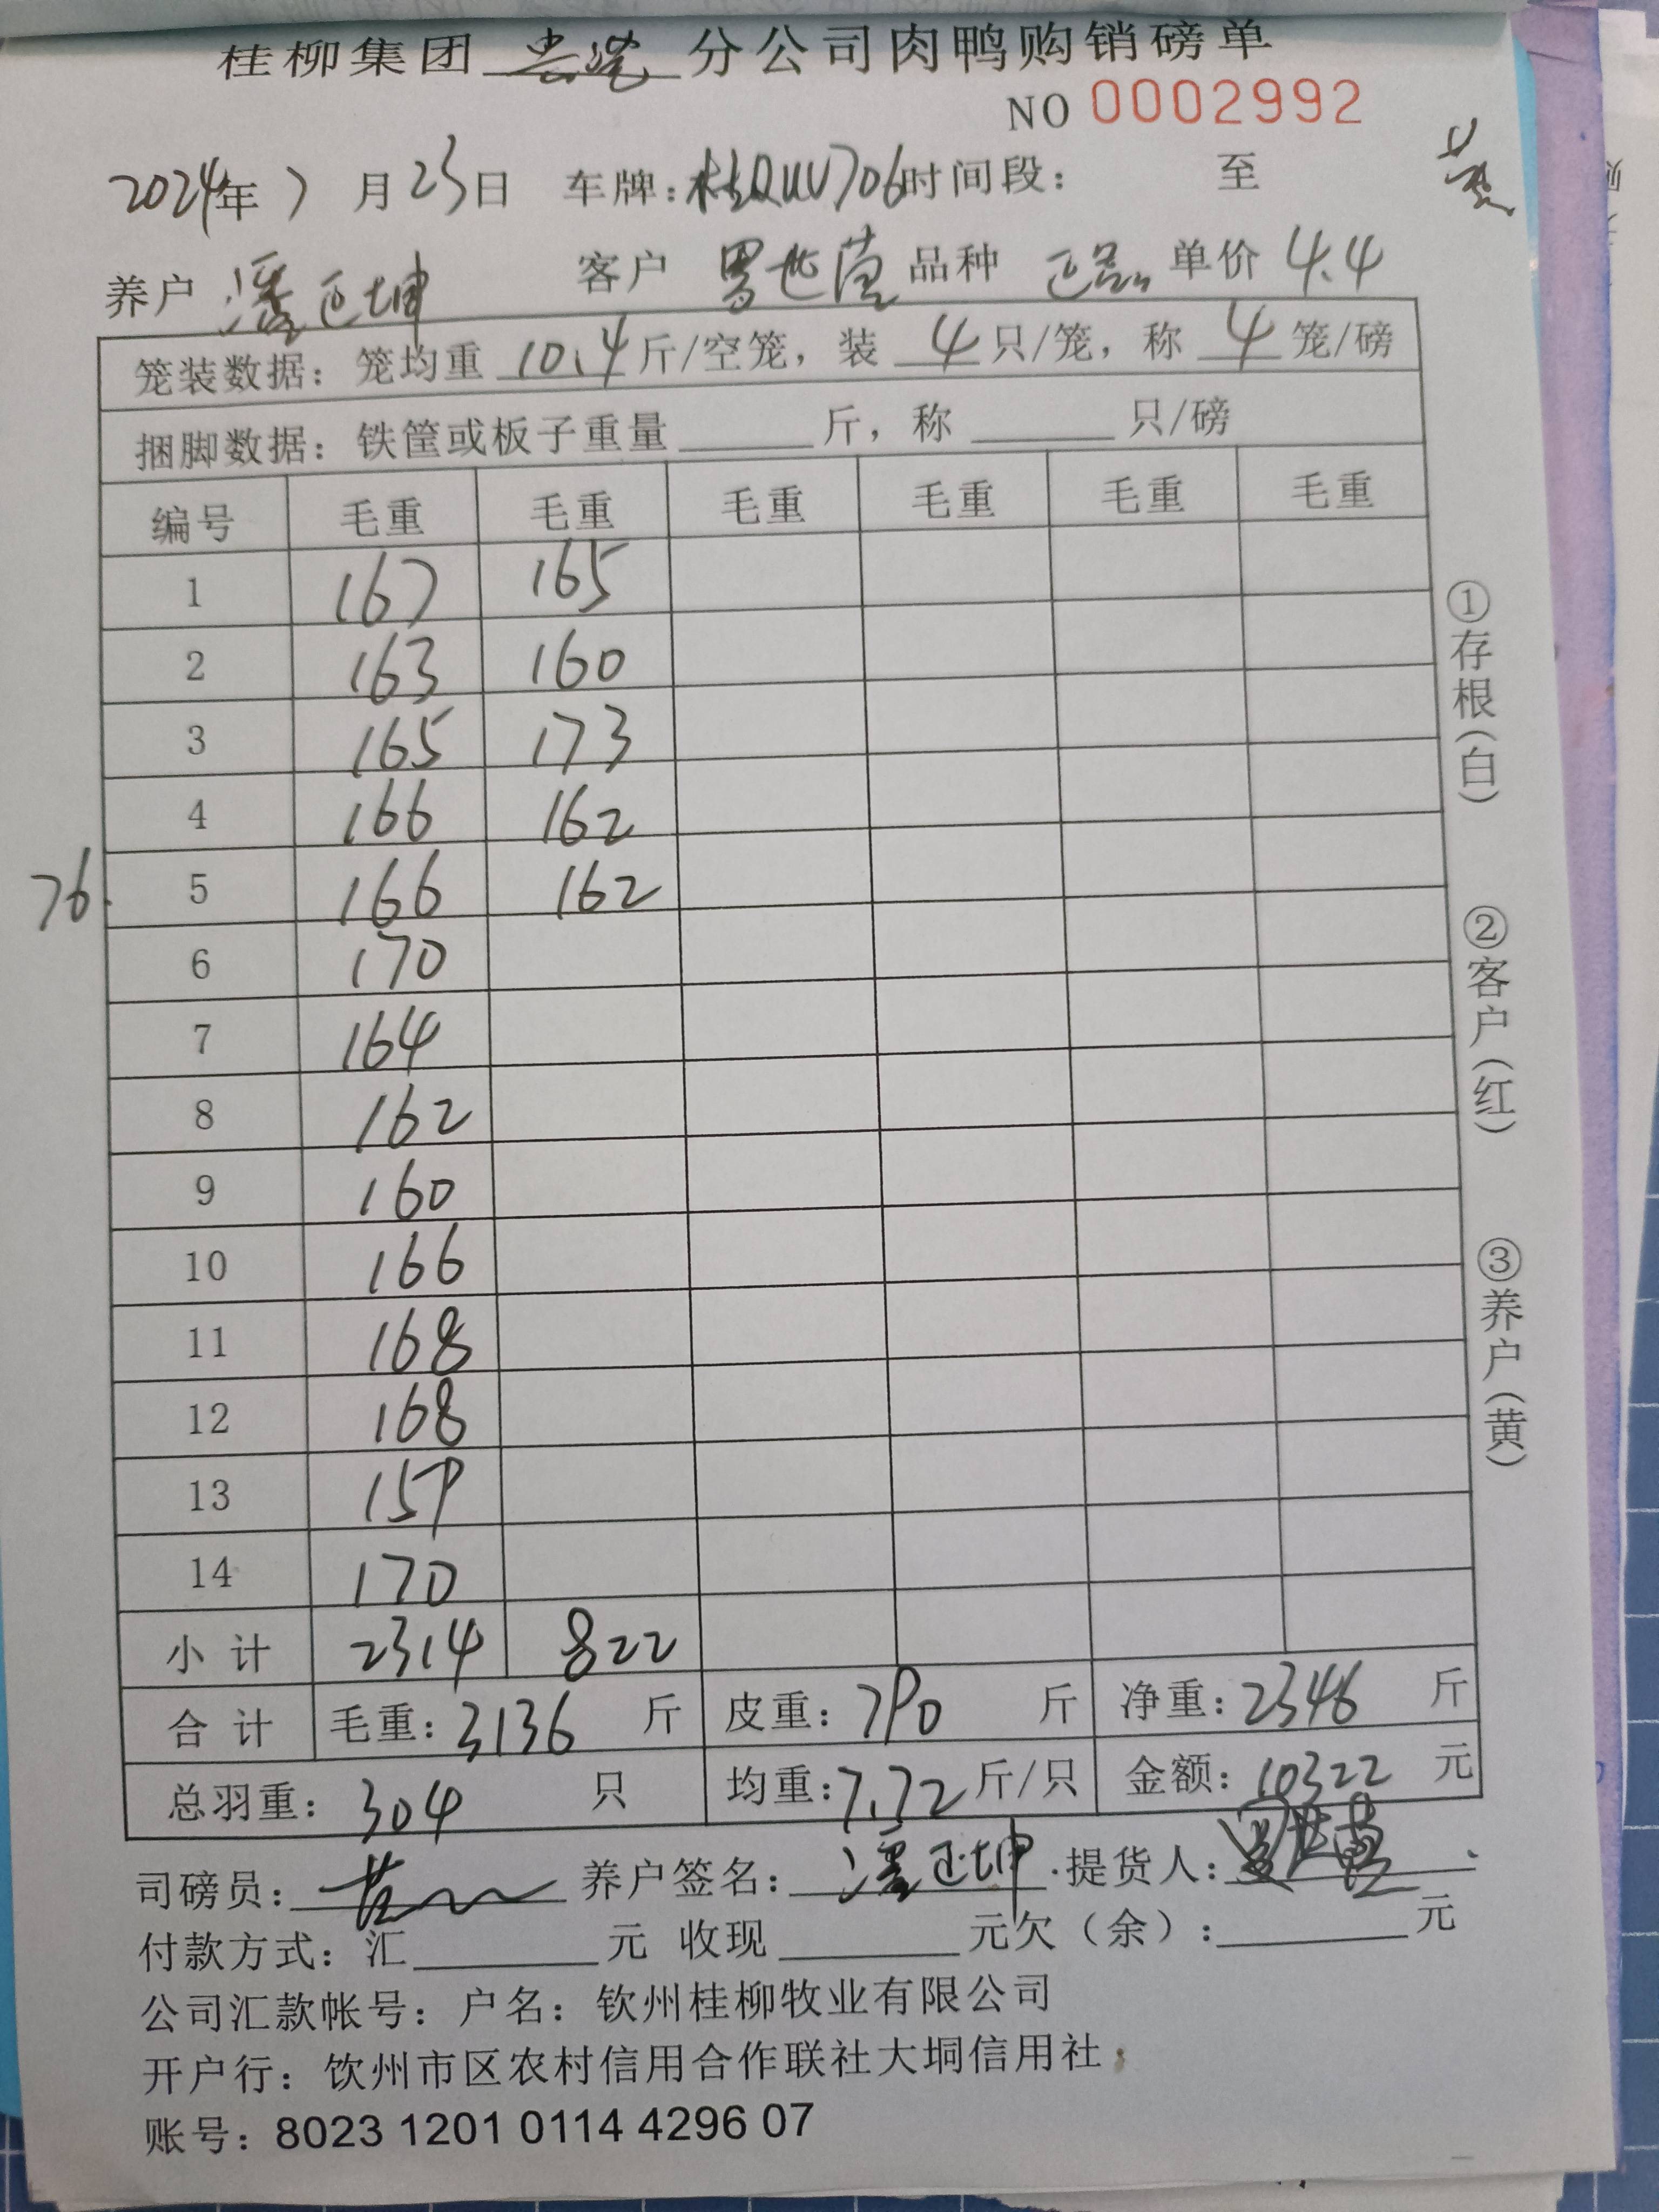 桂柳集团 贵港 分公司肉鸭购销磅单
NO 0002992
2024年 7 月 23日 车牌:桂QUV706时间段: 至
养户 潘正坤 客户 罗世萱 品种 正品 单价 4.4
笼装数据: 笼均重 10.4 斤/空笼, 装 4 只/笼, 称 4 笼/磅
捆脚数据: 铁筐或板子重量 斤, 称 只/磅
编号 毛重 毛重 毛重 毛重 毛重 毛重
1 167 165
2 163 160
3 165 173
4 166 162
76. 5 166 162
6 170
7 164
8 162
9 160
10 166
11 168
12 168
13 159
14 170
小计 2314 822
合计 毛重: 3136 斤 皮重: 790 斤 净重: 2346 斤
总羽重: 304 只 均重: 7.72 斤/只 金额: 10322 元
司磅员: 养户签名: 潘正坤 提货人:
付款方式: 汇 元 收现 元欠(余): 元
公司汇款帐号: 户名: 钦州桂柳牧业有限公司
开户行: 饮州市区农村信用合作联社大垌信用社
账号: 8023 1201 0114 4296 07
①存根(白)
②客户(红)
③养户(黄)